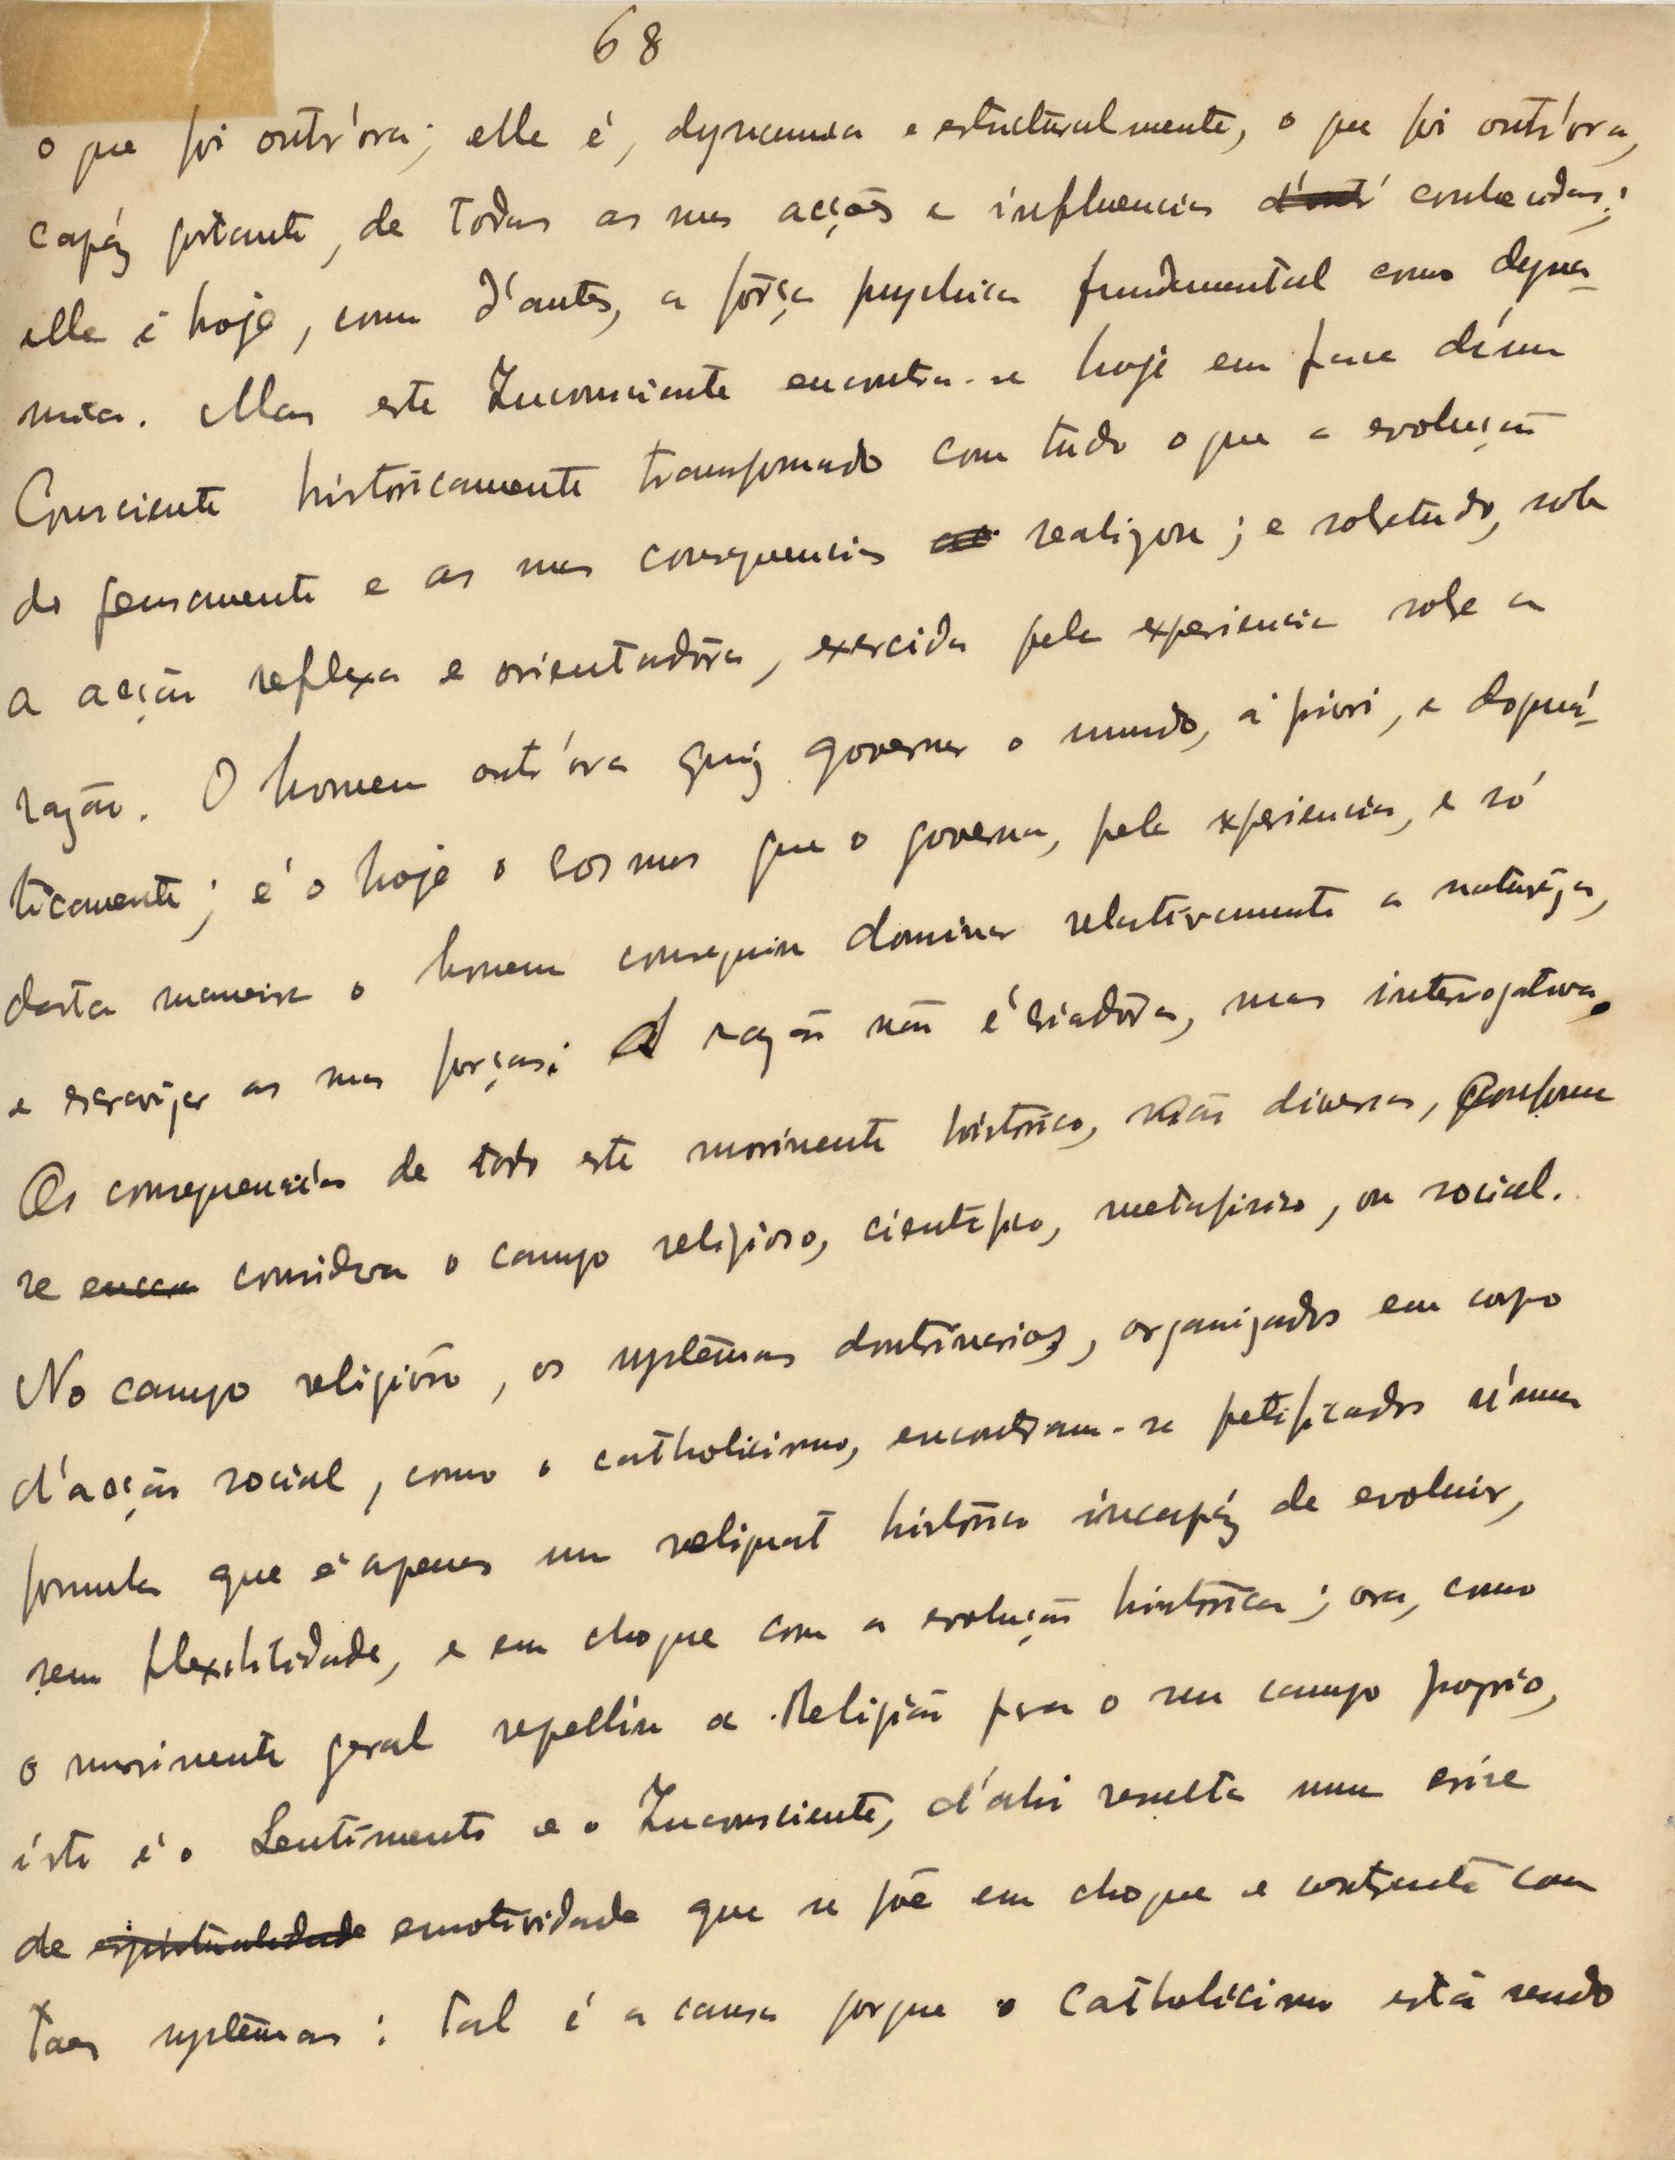 68
o que foi outr'ora; elle é, dynamica e estructuralmente, o que foi outr'ora,
capáz portanto, de todas as suas acções e influencias d'outr' conhecidas;
elle é hoje, como d'antes, a fôrça psychica fundamental como dyna-
mica. Mas este Inconsciente encontra-se hoje em face d'um
Consciente historicamente transformado com tudo o que a evolução
do pensamento e as suas consequencias realizou; e sobretudo, sob
a acção reflexa e orientadôra, exercida pela experiencia sobre a
razão. O homem outr'ora quiz governar o mundo, á priori, e dogmá-
ticamente; é o hoje o cosmos que o governa, pela experiencia, e só
desta maneira o homem conseguiu dominar relativamente a naturêza,
e escravizar as suas forças; A razão não é criadôra, mas interrogativa.
As consequencias de todo este movimento histórico, são diversas, conforme
se encca considera o campo religioso, cientifico, metafisico, ou social.
No campo religiôso, os systêmas doutrinarios, organizados em corpo
d'acção social, como o catholicismo, encontram-se petrificados n'uma
formula que é apenas um reliquat histórico incapáz de evoluir,
sem flexibilidade, e em choque com a evolução histórica; ora, como
o movimento geral repelliu a Religião para o seu campo proprio,
isto é o Sentimento e o Inconsciente, d'ahi resulta uma crise
de espiritualidade emotividade que se põe em choque e contraste com
taes systêmas: tal é a causa porque o Catholicismo está sendo